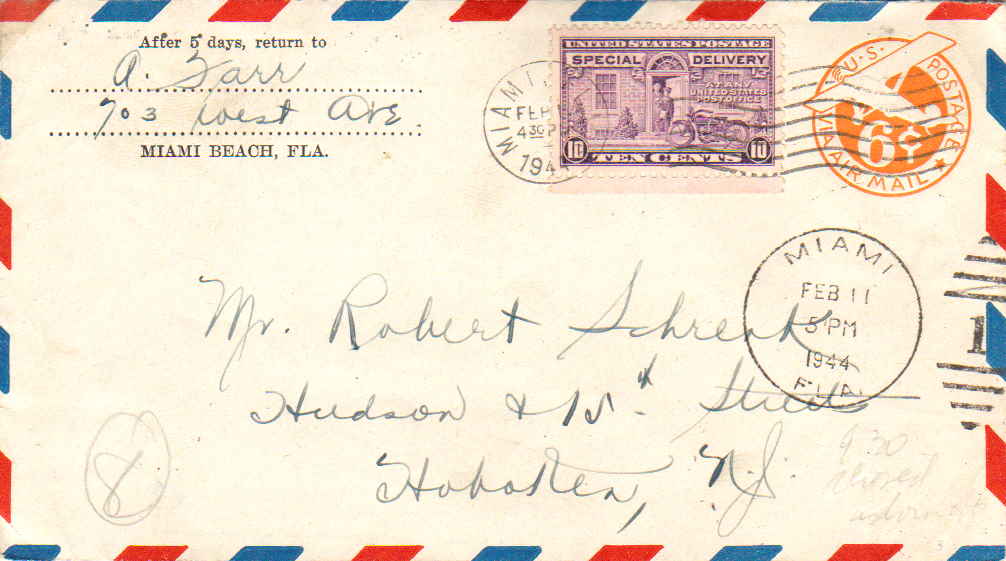 After 5 days, return to
A. Zarr
703 West Ave
MIAMI BEACH, FLA.
MIAMI,
FEB
4 30 P
194
UNITED STATES POSTAGE
SPECIAL DELIVERY
AT ANY
UNITED STATES
POST OFFICE
10 TEN CENTS 10
U.S. POSTAGE
6¢
VIA AIR MAIL
MIAMI
FEB 11
5 PM
1944
FLA.
1
Mr. Robert Schrenk
Hudson & 15th Street
Hoboken, N.J.
8
9 30
closed